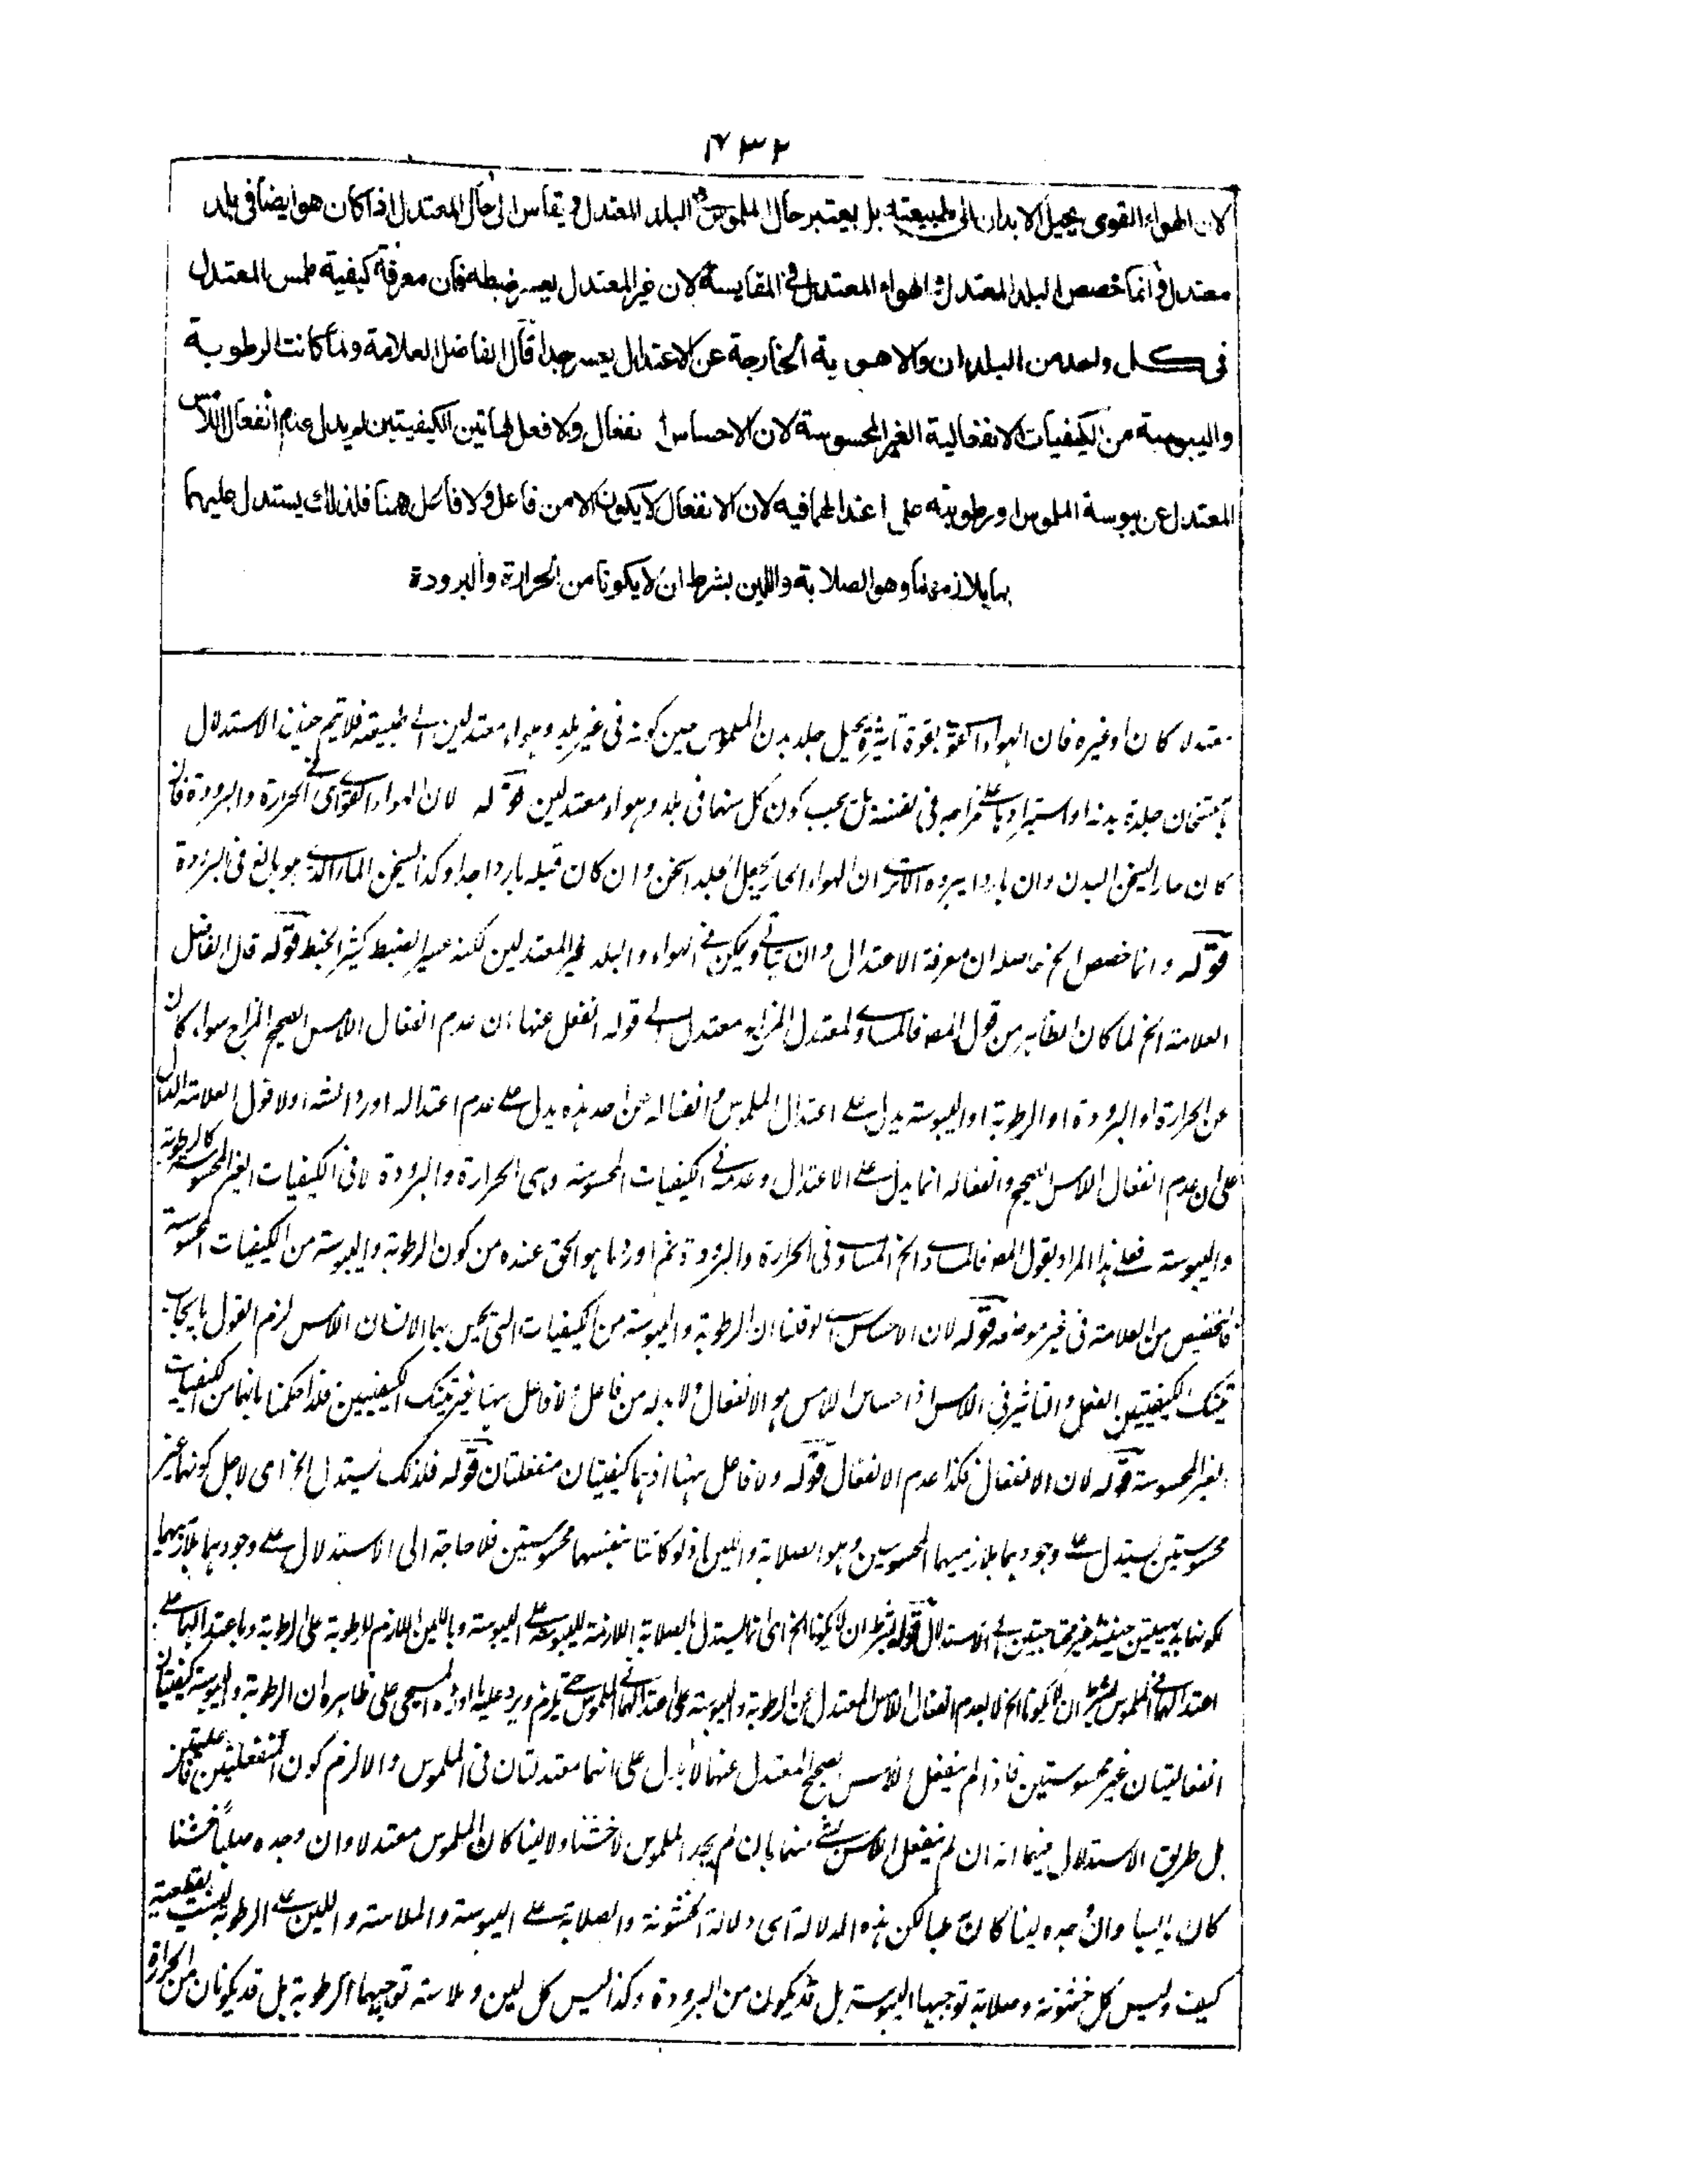 ٧٣٢
لان الهواء القوى يحيل الابدان الى طبيعته بل يعتبر حال الملموس فى البلد المعتدل و يقاس الى حال المعتدل اذا كان هو ايضا فى بلد
معتدل و انما خصص البلد المعتدل و الهواء المعتدل فى المقايسة لان غير المعتدل يعسر ضبطه فان معرفة كيفية ملمس المعتدل
فى كل واحد من البلدان والاهوية الخارجة عن الاعتدال يعسر جدا قال الفاضل العلامة ولما كانت الرطوبة
واليبوسة من الكيفيات الانفعالية الغير المحسوسة لان الاحساس انفعال ولا فعل لهاتين الكيفيتين لم يدل عدم انفعال اللامس
المعتدل عن يبوسة الملموس او رطوبته على اعتدالهما فيه لان الانفعال لا يكون الا من فاعل ولا فاعل ههنا فلذلك يستدل عليهما
بما يلازمهما وهو الصلابة واللين بشرط ان لا يكونا من الحرارة والبرودة
معتدلا كان او غيره فان الهواء القوى بقوة تاثيره يحيل جلد بدن الملموس حين كونه فى غير بلد وهواء معتدلين الى طبيعته فلا يتم حينئذ الاستدلال
بسخان جلدة بدنه او استبرادها على مزاجه فى نفسه بل يجب كون كل منهما فى بلد وهواء معتدلين قوله لان الهواء القوى اى فى الحرارة والبرودة فانه
كان حارا يسخن البدن وان باردا يبرده الا ترى ان الهواء الحار يجعل الجلد اسخن وان كان قبله باردا جدا وكذا يسخن الماء الذى هو بالغ فى البرودة
قوله وانما خصص الخ حاصله ان معرفة الاعتدال وان يتاتى ويمكن فى الهواء والبلد غير المعتدلين لكنه عسير الضبط كثير الخبط قوله قال الفاضل
العلامة الخ لما كان الظاهر من قول المصـ فالمساوى لمعتدل المزاج معتدل الى قوله انفعل عنها ان عدم انفعال اللامس الصحيح المزاج سواء كان
عن الحرارة او البرودة او الرطوبة او اليبوسة يدل على اعتدال الملموس و انفعاله عن احد هذه يدل على عدم اعتداله اورد الشه اولا قول العلامة الدال
على ان عدم انفعال اللامس الصحيح وانفعاله انما يدل على الاعتدال وعدمه فى الكيفيات المحسوسة وهى الحرارة والبرودة لا فى الكيفيات الغير المحسوسة كالرطوبة
واليبوسة فعلى هذا المراد بقول المصـ فالمساوى الخ المساوى فى الحرارة والبرودة ثم اورد ما هو الحق عنده من كون الرطوبة واليبوسة من الكيفيات المحسوسة
فالتخصيص من العلامة فى غير موضعه قوله لان الاحساس الخ لو قلنا ان الرطوبة واليبوسة من الكيفيات التى يحس بها الانسان اللامس لزم القول بايجاب
تينك الكيفيتين الفعل والتاثير فى اللامس اذ احساس اللامس هو الانفعال ولا بد له من فاعل ولا فاعل ههنا غير تينك الكيفيتين فلذا حكمنا بانهما من الكيفيات
الغير المحسوسة قوله لان الانفعال فكذا عدم الانفعال قوله ولا فاعل ههنا اذ هما كيفيتان منفعلتان قوله فلذلك يستدل الخ اى لاجل كونهما غير
محسوستين يستدل على وجودهما بلازميهما المحسوسين وهو الصلابة واللين اذ لو كانتا بنفسهما محسوستين فلا حاجة الى الاستدلال على وجودهما بلازميهما
لكونهما بديهيتين حينئذ غير محتاجتين الى الاستدلال قوله بشرط ان لا يكونا الخ اى انما يستدل بالصلابة اللازمة لليبوسة على اليبوسة وباللين اللازم للرطوبة على الرطوبة وباعتدالهما على
اعتدالهما فى الملموس بشرط ان لا يكونا الخ لا بعدم انفعال اللامس المعتدل عن الرطوبة واليبوسة على اعتدالهما فى الملموس حتى يلزم ويرد عليه ما اورده المسيحى على ظاهره ان الرطوبة واليبوسة كيفيتان
انفعاليتان غير محسوستين فاذا لم ينفعل اللامس الصحيح المعتدل عنهما لا يدل على انهما معتدلتان فى الملموس والا لزم كون المنفعلتين فاعلتين
بل طريق الاستدلال فيهما انه ان لم ينفعل اللامس بشئ منهما بان لم يجد الملموس لا خشنا ولا لينا كان الملموس معتدلا وان وجده صلبا خشنا
كان يابسا وان وجده لينا كان رطبا لكن هذه الدلالة اى دلالة الخشونة والصلابة على اليبوسة والملاسة واللين على الرطوبة ليست بقطعية
كيف وليس كل خشونة وصلابة توجبها اليبوسة بل قد يكون من البرودة وكذا ليس كل لين وملاسة توجبهما الرطوبة بل قد يكونان من الحرارة